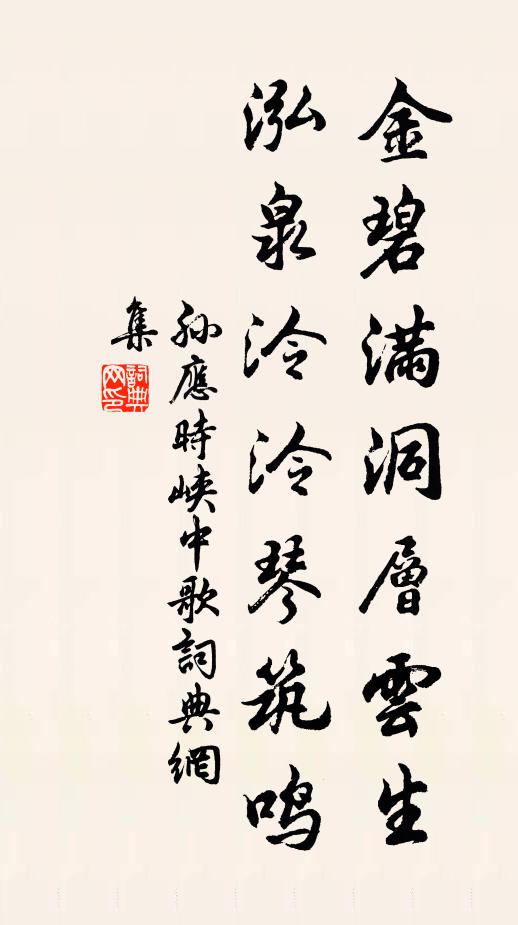 金碧满洞層雲生
泓泉泠泠琴筑鸣
孙應時峡中歌詞典網
集
詞典
网印